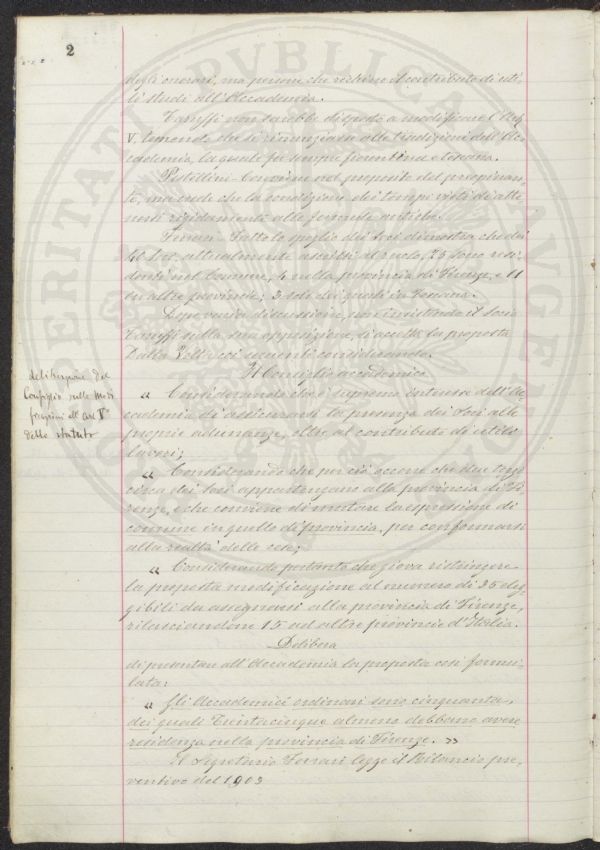 2
degli onorari, ma persone che rechino il contributo di uti-
li studi all'Accademia.
Caruffi non sarebbe disposto a modificare l'Art.
V. temendo che si rinunziasse alle tradizioni dell'Ac-
cademia, la quale fu sempre fiorentina e toscana.
Pistellini Conviene nel proposito del proponen-
te, ma crede che la condizione dei tempi vieti di atte-
nersi rigidamente alle formule antiche.
Ferrari Fatto lo spoglio dei Soci dimostra che dei
40 Soci attualmente ascritti al ruolo, 25 sono resi-
denti nel Comune, 4 nella provincia di Firenze, e 11
in altre provincie; 3 soli dei quali in Toscana.
Dopo varia discussione, non insistendo il socio
Caruffi sulla sua opposizione, si accetta la proposta
Dalla Volta coi seguenti considerando.
Il Consiglio accademico
deliberazione del
Consiglio sulle modi
ficazioni all'art V°
dello statuto
" Considerando che è supremo interesse dell'Ac-
cademia di assicurarsi la presenza dei Soci alle
proprie adunanze, oltre al contributo di utili
lavori;
" Considerando che per ciò occorre che due terzi
circa dei Soci appartengano alla provincia di Fi-
renze, e che conviene di mutare la espressione di
comune in quella di provincia, per conformarsi
alla realtà delle cose;
" Considerando pertanto che giova restringere
la proposta modificazione al numero di 35 eleg-
gibili da assegnarsi alla provincia di Firenze,
rilasciandone 15 ad altre provincie d'Italia.
Delibera
di presentare all'Accademia la proposta così formu-
lata:
" Gli Accademici ordinari sono cinquanta,
dei quali Trentacinque almeno debbono avere
residenza nella provincia di Firenze. "
Il Segretario Ferrari legge il Bilancio pre-
ventivo del 1903